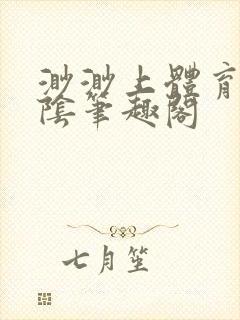 渺渺上體育
陰筆趣閣
七月笙